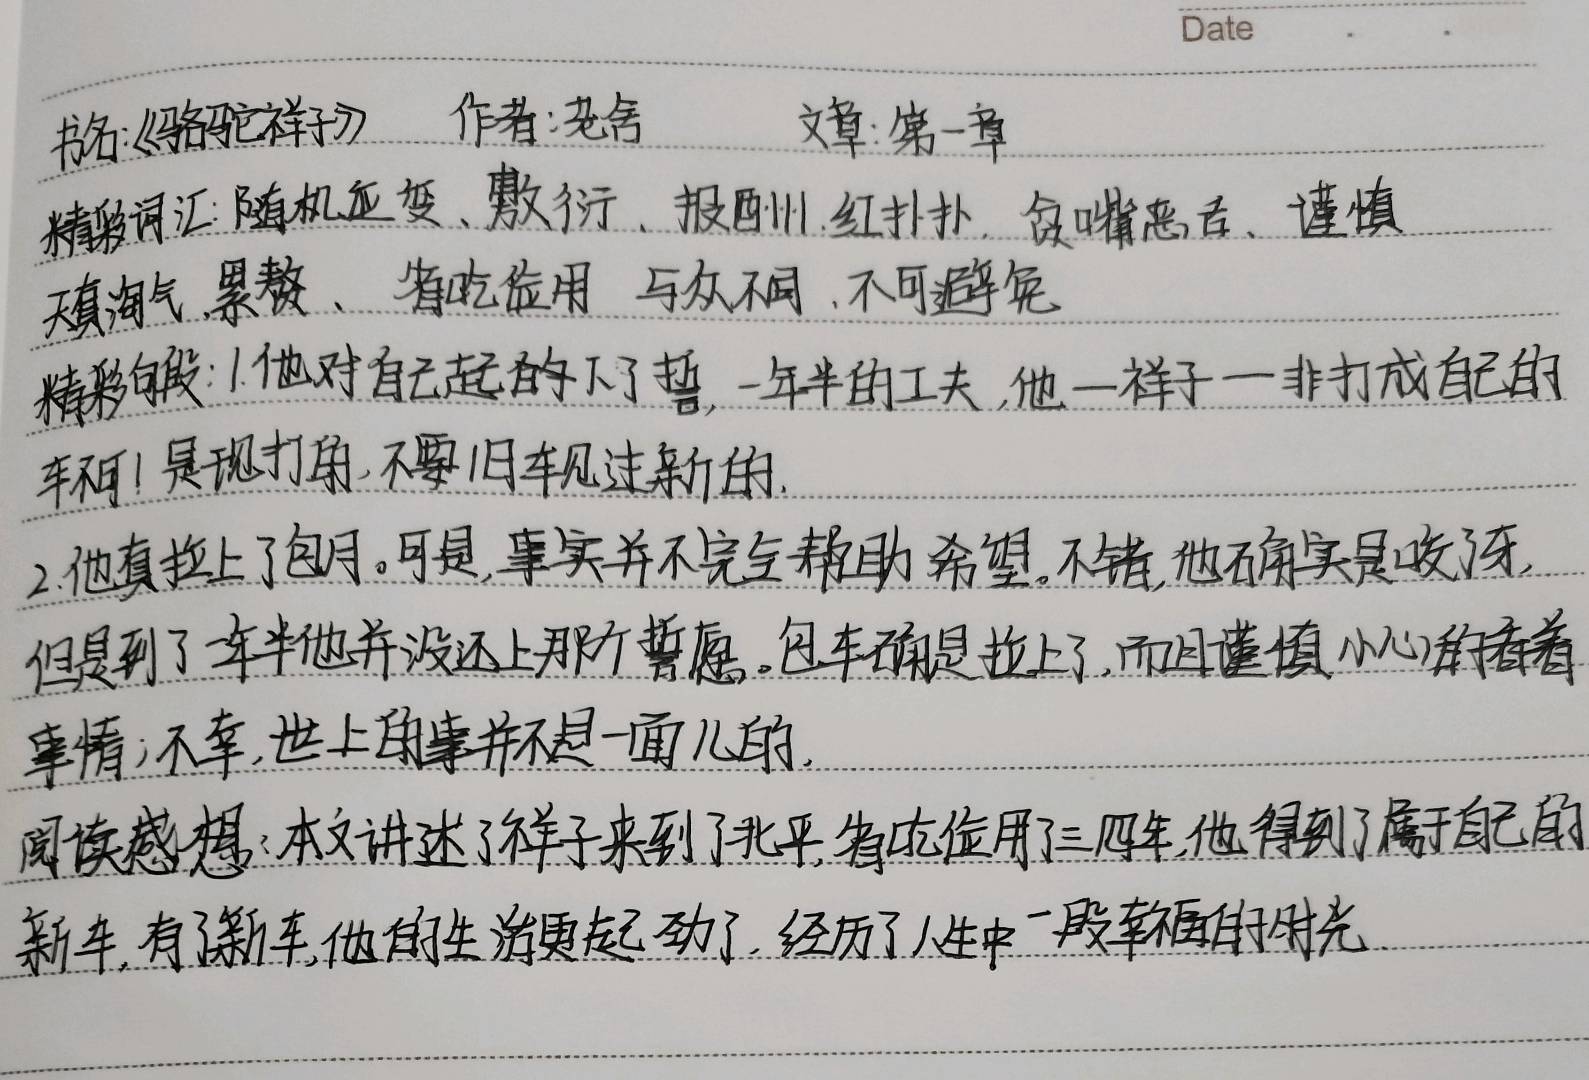 Date . .
书名:《骆驼祥子》 作者:老舍 文章:第一章
精彩词汇:随机应变、敷衍、报酬州.红扑扑、贪嘴恶舌、谨慎
天真淘气、累赘、省吃俭用 与众不同、不可避免
精彩句段:1.他对自己起的下了誓,一年半的工夫,他—祥子—非打成自己的
车不可!是现打的,不要旧车见过新的.
2.他真拉上了包月。可是,事实并不完全帮助希望。不错,他确实是咬了牙,
但是到了一年半他并没还上那个誓愿。包车确是拉上了,而且谨慎小心的看着
事情;不幸,世上的事并不是一面儿的.
阅读感想:本文讲述了祥子来到了北平,省吃俭用了三四年,他得到了属于自己的
新车,有了新车,他的生活更起劲了,经历了人生中一段幸福的时光